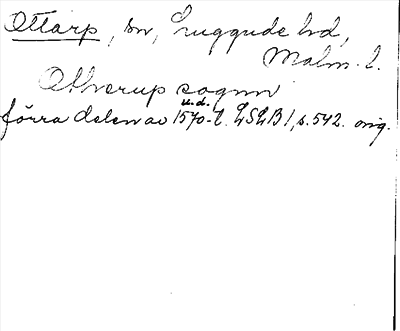 Ottarp, sn, Luggude hd,
Malm. l.
Otterup sognn
u. d.
förra delen av 1570-t. LSLB I, s. 542. orig.